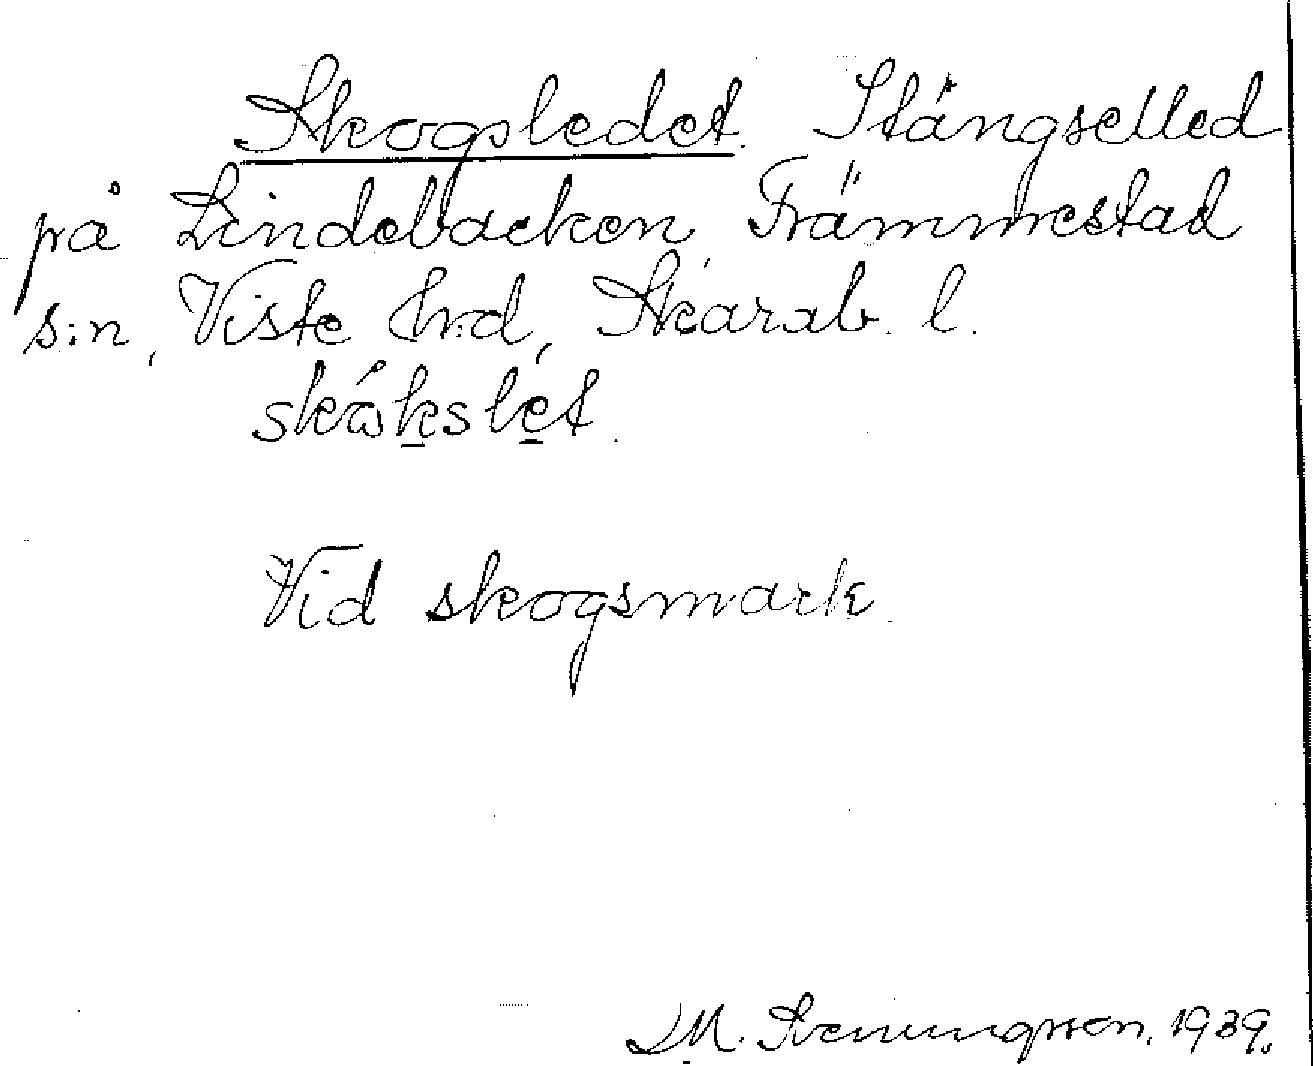 Skogsledet. Stängselled
på Lindebacken, Främmestad
s:n, Viste hrd, Skarab. l.
skókslet.
Vid skogsmark.
D.M. Sveningsson. 1939.